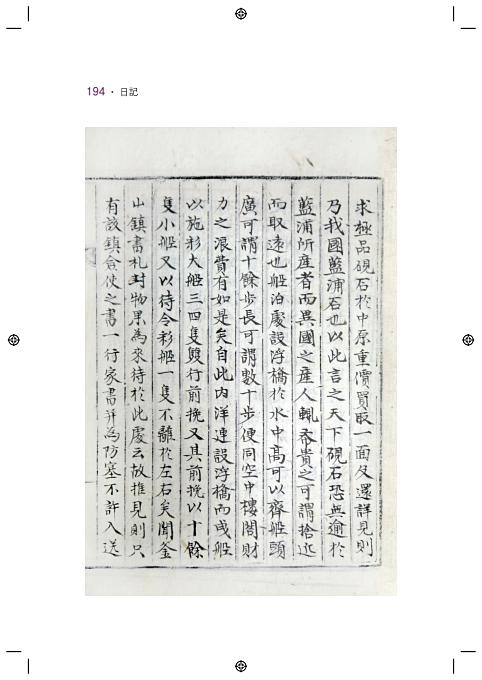 194 · 日記
求極品硯石於中原重價買取一面及還詳見則
乃我國藍浦石也以此言之天下硯石恐無逾於
藍浦所産者而異國之産人輒吝貴之可謂捨近
而取遠也船泊處設浮橋於水中高可以齊船頭
廣可謂十餘步長可謂數十步便同空中樓閣財
力之浪費有如是矣自此內洋連設浮橋而或船
以施彩大船三四隻雙行前挽又其前挽以十餘
隻小船又以待令彩船一隻不離於左右矣聞釜
山鎭書札封物果為來待於此處云故推見則只
有該鎭僉使之書一行家書幷為防塞不許入送